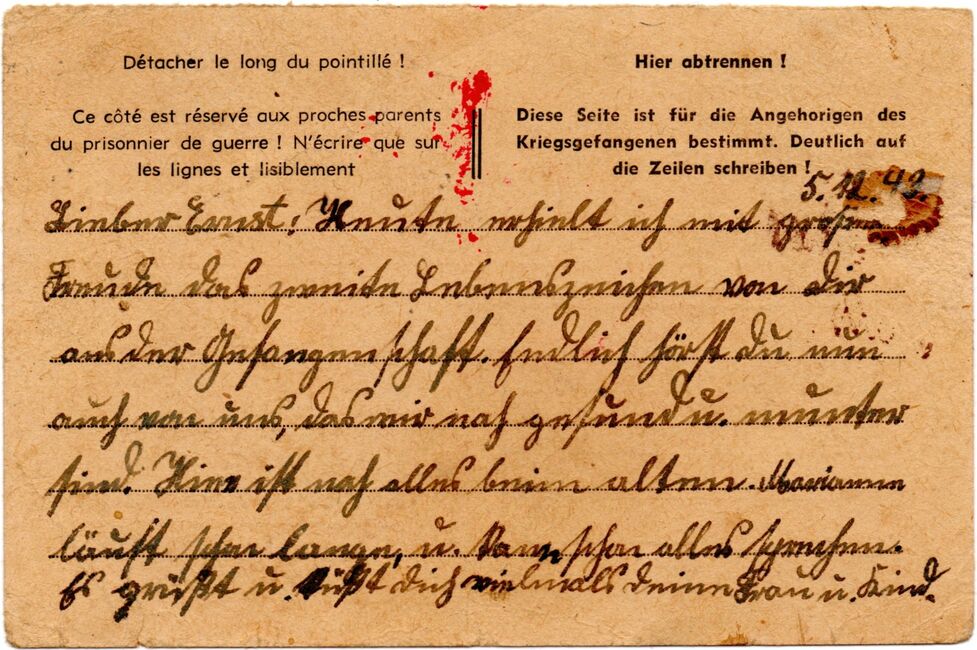 Détacher le long du pointillé !
Ce côté est réservé aux proches parents
du prisonnier de guerre ! N'écrire que sur
les lignes et lisiblement
Hier abtrennen !
Diese Seite ist für die Angehorigen des
Kriegsgefangenen bestimmt. Deutlich auf
die Zeilen schreiben !
Lieber Ernst! Heute erhielt ich mit großer
Freude das zweite Lebenszeichen von Dir
aus der Gefangenschaft. Endlich hörst du nun
auch von uns, das wir noh gesund u. munter
sind. Hier ist noh alles beim alten. Marianne
läuft schon lange, u. kann schon alles sprechen.
Es grüßt u. küßt Dich vielmals deine Frau u. Kind.